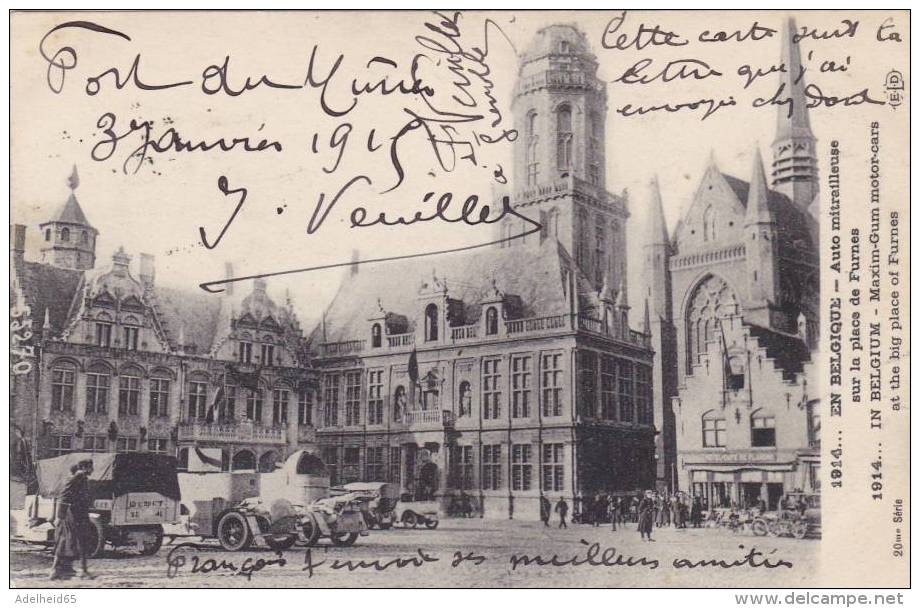 Cette carte suit la
lettre que j'ai
envoyée chez
3 Janvier 1915
J. Veuillet
(E.D)
1914... EN BELGIQUE — Auto mitrailleuse
sur la place de Furnes
1914... IN BELGIUM — Maxim-Gum motor-cars
at the big place of Furnes
20me Série
François t'envoie ses meilleurs amitiés
© Adelheid65